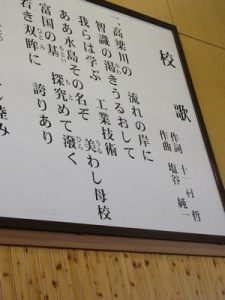 校歌
作詞 十村 哲
作曲 塩谷 純一
一、高梁川の 流れの岸に
智識の渇きうるおして
我らは学ぶ 工業技術 美わし母校
ああ水島その名ぞ
富国の基 探究めて潑く
若き双眸に 誇りあり